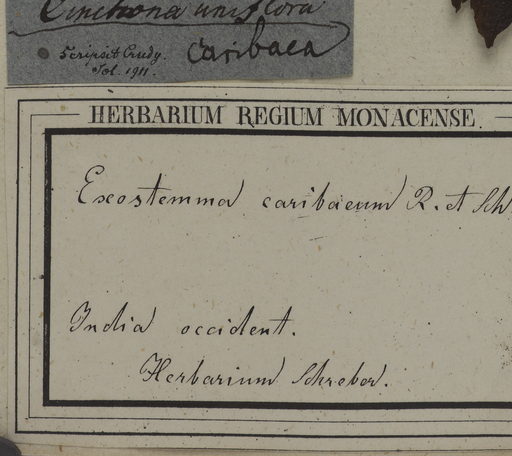 Cinchona uniflora
caribaea
Scripsit Crudy.
Tol. 1911.
HERBARIUM REGIUM MONACENSE.
Exostemma caribaeum R. et Sch
India occident.
Herbarium Schreber.